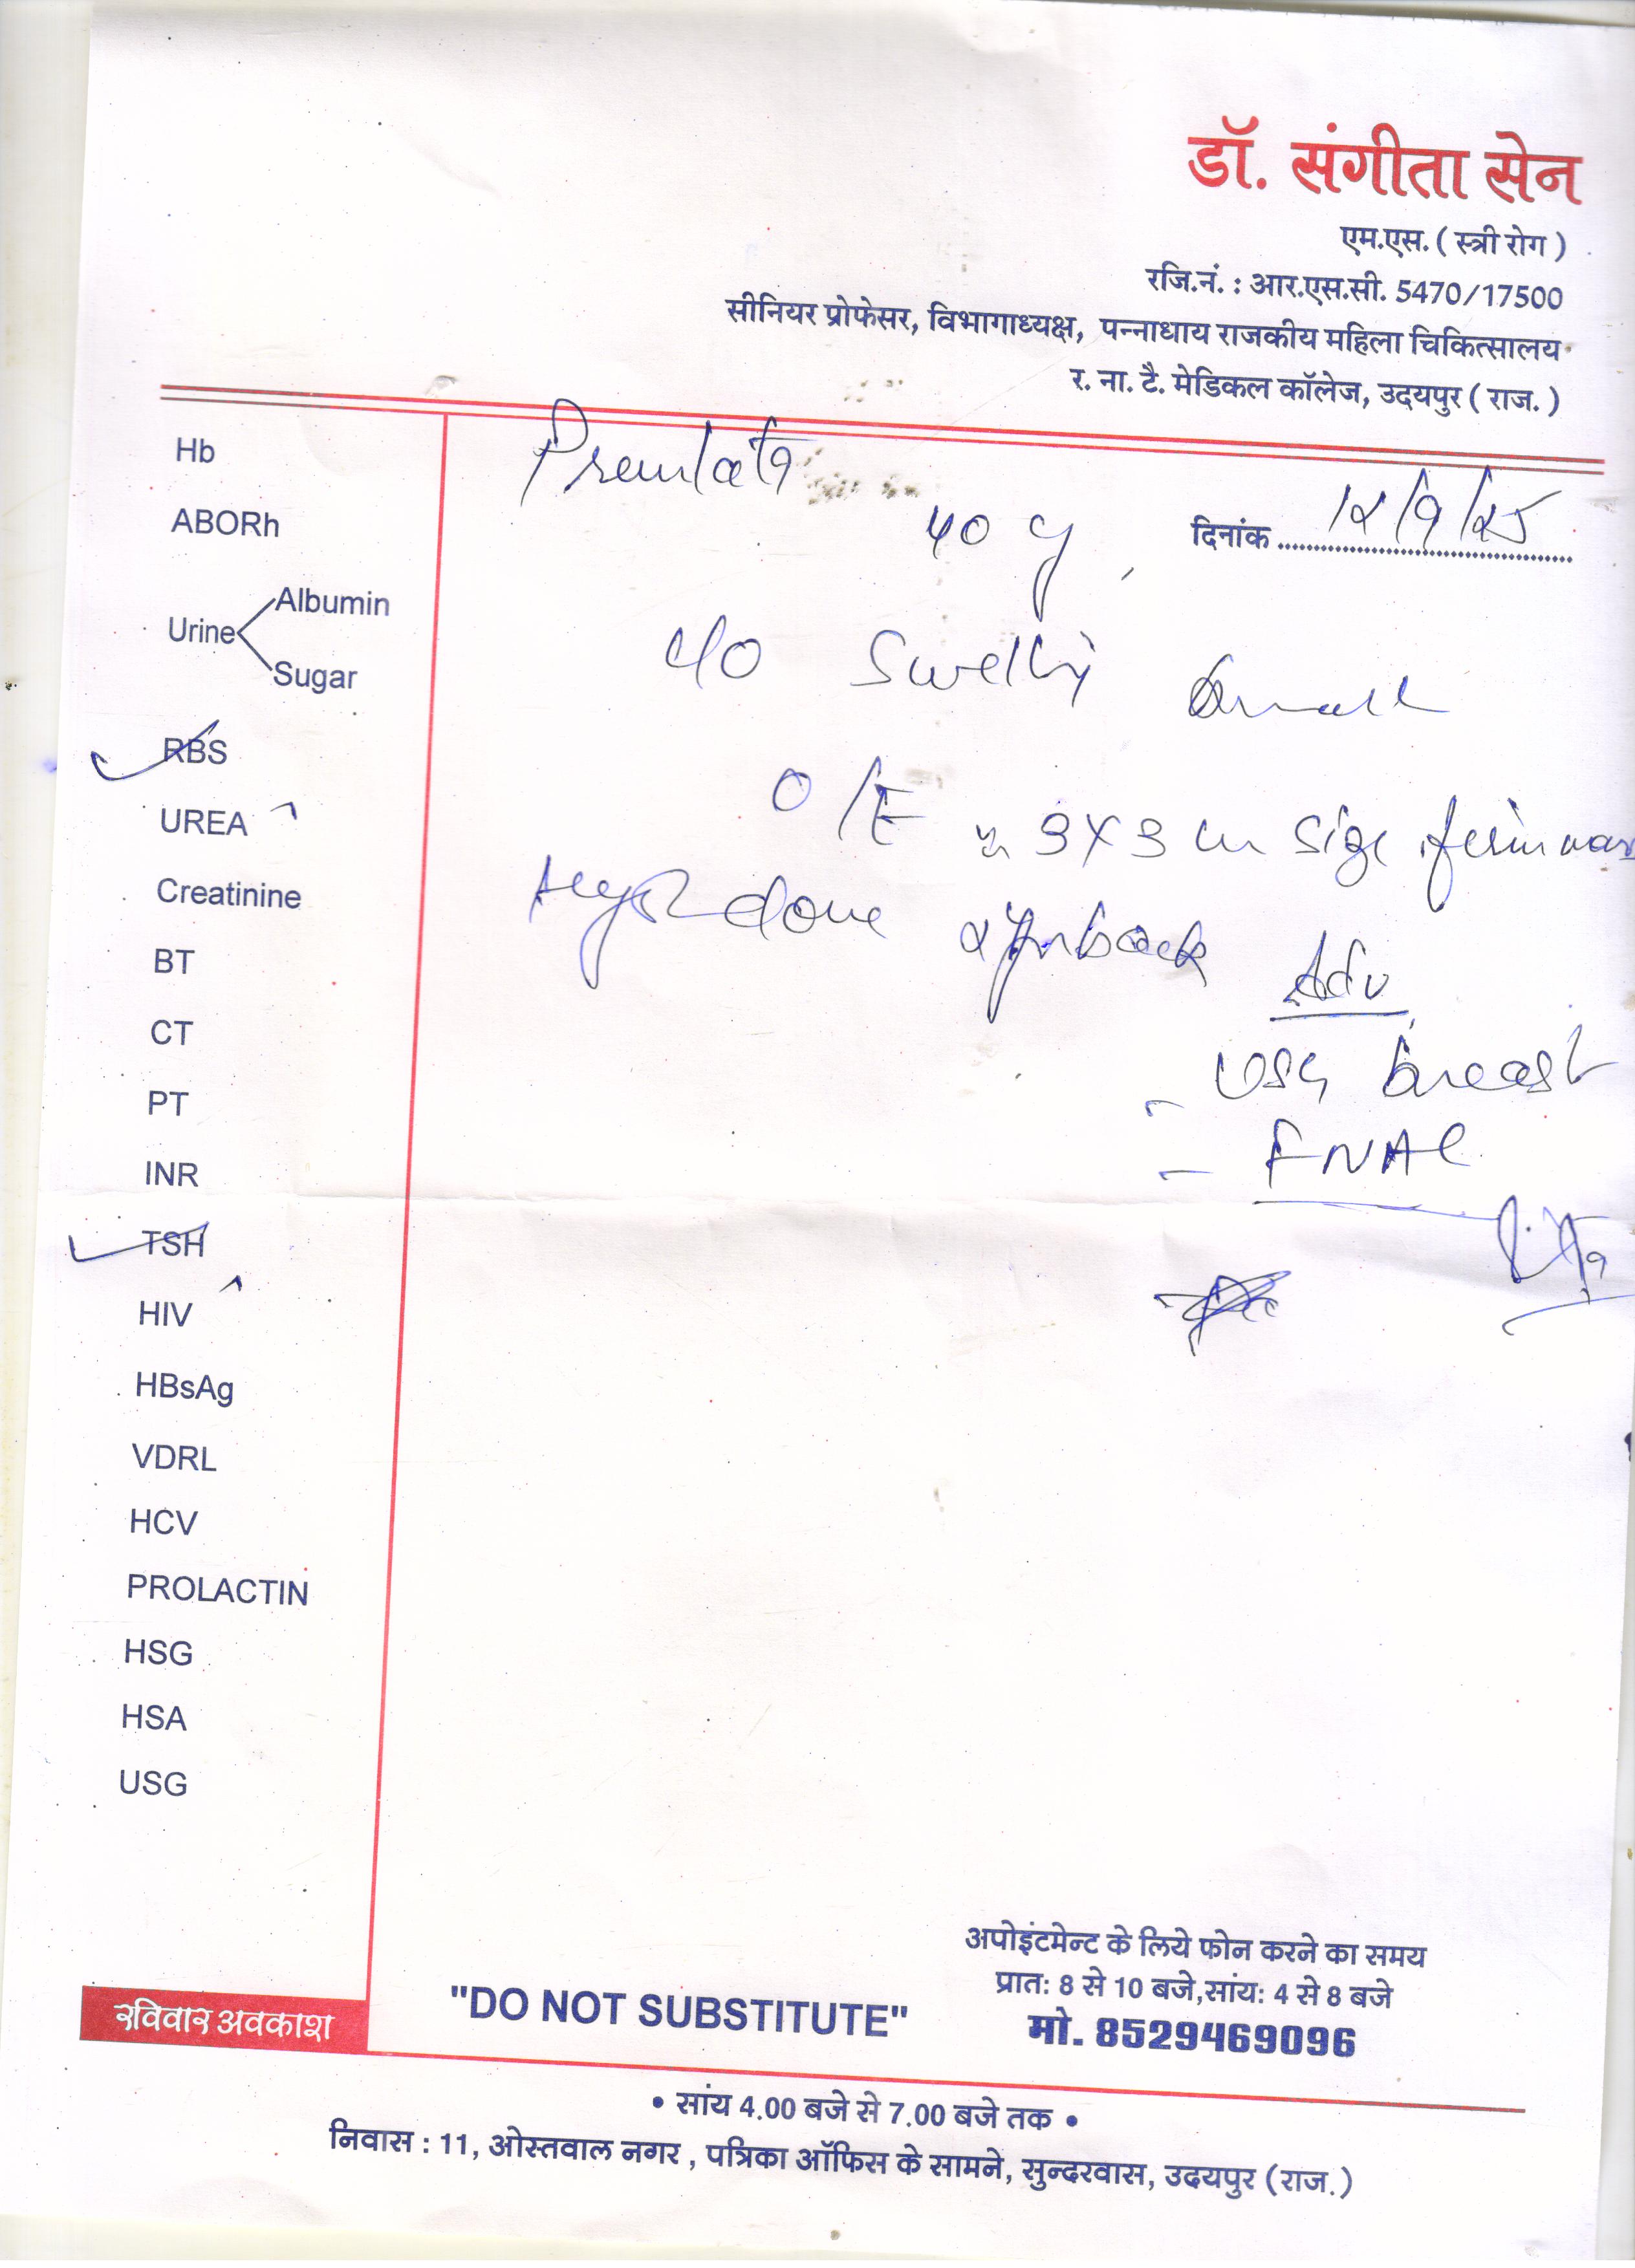 डॉ. संगीता सेन
एम.एस. ( स्त्री रोग )
रजि.नं. : आर.एस.सी. 5470/17500
सीनियर प्रोफेसर, विभागाध्यक्ष, पन्नाधाय राजकीय महिला चिकित्सालय
र. ना. टै. मेडिकल कॉलेज, उदयपुर ( राज. )
Premlata
40 y
दिनांक 12/9/25
c/o
O/E 3x3 cm size firm mass
done back
Adv
- USG breast
- FNAC
Hb
ABORh
Urine Albumin
Sugar
RBS
UREA
Creatinine
BT
CT
PT
INR
TSH
HIV
HBsAg
VDRL
HCV
PROLACTIN
HSG
HSA
USG
रविवार अवकाश
"DO NOT SUBSTITUTE"
अपोइंटमेन्ट के लिये फोन करने का समय
प्रातः 8 से 10 बजे,सांयः 4 से 8 बजे
मो. 8529469096
• सांय 4.00 बजे से 7.00 बजे तक •
निवास : 11, ओस्तवाल नगर , पत्रिका ऑफिस के सामने, सुन्दरवास, उदयपुर (राज.)